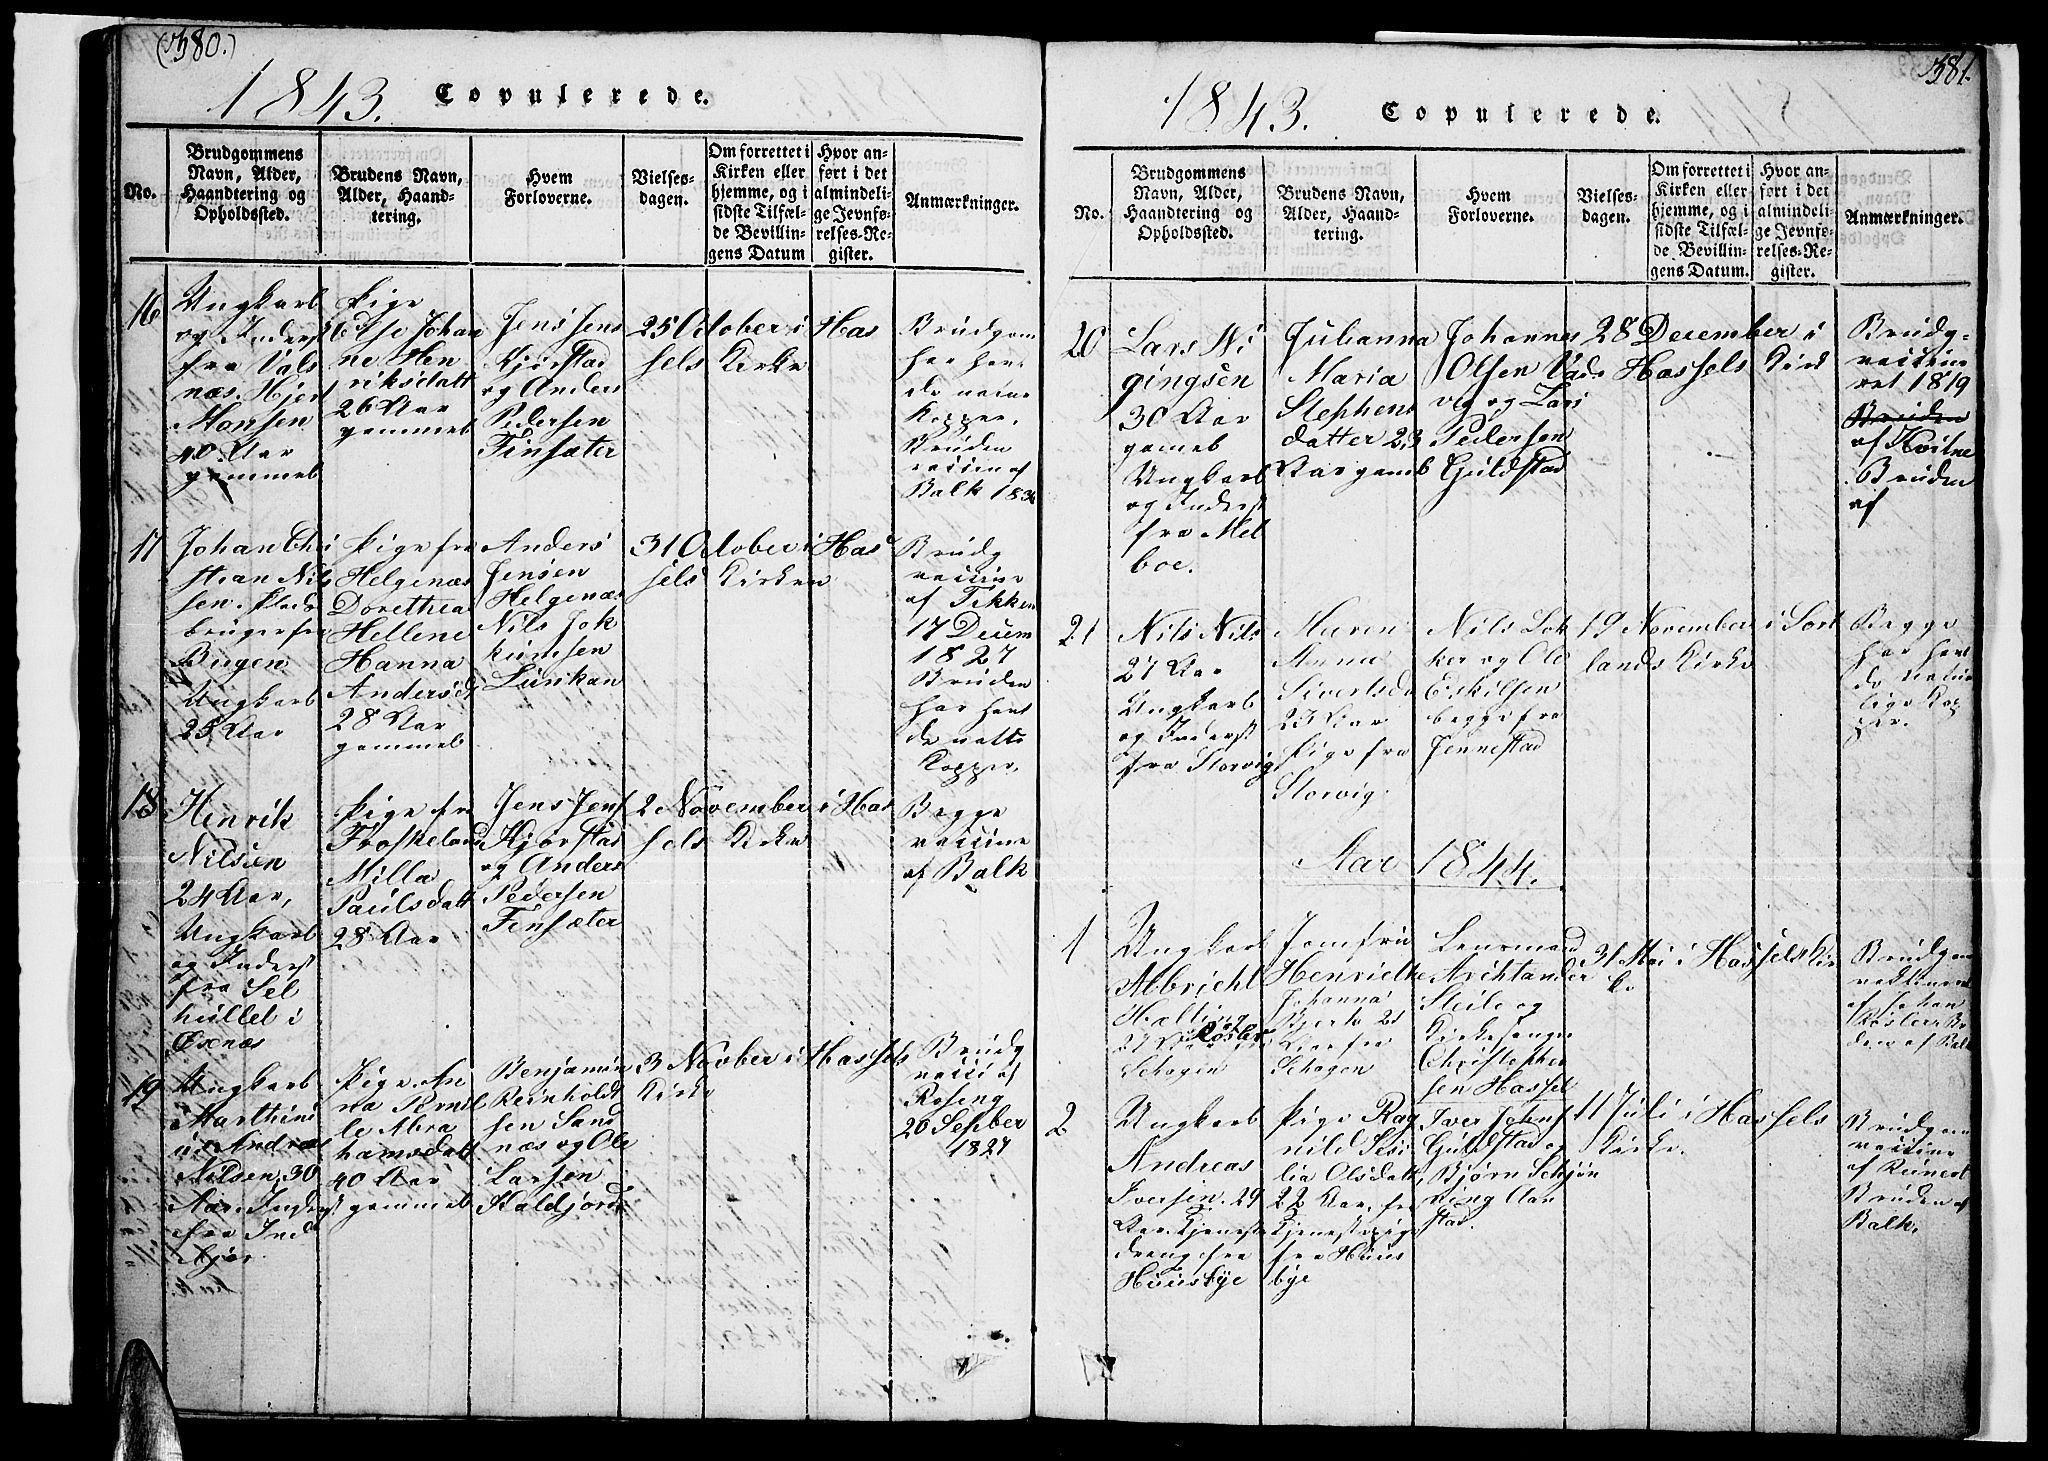 (380.)
1843. Copulerede.
No.
Brudgommens
Navn, Alder,
Haandtering og
Opholdssted.
Brudens Navn,
Alder, Haand-
tering.
Hvem
Forloverne.
Vielses-
dagen.
Om forrettet i
Kirken eller
hjemme, og i
sidste Tilfæl-
de Bevillin-
gens Datum
Hvor an-
ført i det
almindeli-
ge Jevnfø-
relses-Re-
gister.
Anmærkninger.
16
Ungkarl
og Inderst
fra Vals
næs. 
Monsen
40 Aar
gammel
Pige
Else Johan
ne Hen
riksdatt
26 Aar
gammel
Jens Jens
Kjørstad
og Anders
Pedersen
Finsæter
25 October i Has
sels Kirke
Brudgom
har hav
de natur
Kopper.
Bruden
vaccine af
Balk
17
Johan Chri
stian Nils
sen. Plads
bruger fra
Bugen
Ungkarl
25 Aar
Pige fra
Helgenæs
Dorethea
Hellene
Hanna
Andersd
28 Aar
gammel
Anders
Jensen
Helgenæs
Nils Jok
kumsen
Lunkan
31 October i Has
sels Kirken
Brudg
vaccine
af Tekken
17 Decem
1827
Bruden
har hav
de natt
Kopper.
18
Henrik
Nilsen
24 Aar,
Ungkarl
og Inderst
fra Sel
hullet i
Exnæs
Pige fra
Froskeland
Milla
Paulsdatt
28 Aar
Jens Jens
Kjørstad
og Anders
Pedersen
Finsæter
2 November i Has
sels Kirke
Begge
vaccine
af Balk
19
Ungkarl
Marthini
us Andreas
Nilsen 30
Aar. Inderst
fra Ind
Pige An
na Pernil
le Abra
hamsdatt
40 Aar
gammel
Benjamin
Reinholdt
sen Sand
næs og Ole
Larsen
Kaldjord
3 Novber i Hassels
Kirke
Brudg
vacci af
Rosing
20 Sepber
1827
381.
1843. Copulerede.
No.
Brudgommens
Navn, Alder,
Haandtering og
Opholdssted.
Brudens Navn,
Alder, Haand-
tering.
Hvem
Forloverne.
Vielses-
dagen.
Om forrettet i
Kirken eller
hjemme, og i
sidste Tilfæl-
de Bevillin-
gens Datum.
Hvor an-
ført i det
almindeli-
ge Jevnfø-
relses-Re-
gister.
Anmærkninger.
20
Lars Ni
gingsen
30 Aar
gamel
Ungkarl
og Inderst
fra Mel
boe.
Julianna
Maria
Stephens
datter 23
Aar gaml
Johannes
Olsen Vads
vig og Lars
Pedersen
Guldstad
28 December i
Hassels Kirk
Brudg
vaccine
ret 1819
Bruden
af Kvitne
Bruden
af
21
Nils Nils
27 Aar
Ungkarl
og Inderst
fra Storvig
Maren
Anna
Sivertsd
23 Aar
Pige fra
Storvig.
Nils Lok
ker og Ole
Eskilsen
begge fra
Jennestad
19 November i Sort
lands Kirke
Begge
har hav
de natur
lige Kop
per.
Aar 1844.
1
Ungkarl
Albricht
Holting
Røsler
27 Aar fra
Schogen
Jomfru
Henriethe
Johanna
Bjerk 21
Aar fra
Schogen
Lensmand
Arichtander
Steile og
Kirkesanger
Christopher
sen Hassel
31 Mai i Hasselskir
ke
Brudgom
vaktineret
af
Røsler Bru
den af Balk
2
Ungkarl
Andreas
Iversen. 29
Aar. Tjeneste
dreng fra
Huusbye
Pige Rag
nild Sesi
lia Olsdatt,
22 Aar, fra
Tjenestepige
fra Huus
bye
Iver Jens
Guldstad og
Bjørn Schjøn
ning Aan
stad.
11 Juli i Hassels
Kirke.
Brudgom
vaccine
af Reinert
Bruden af
Balk.